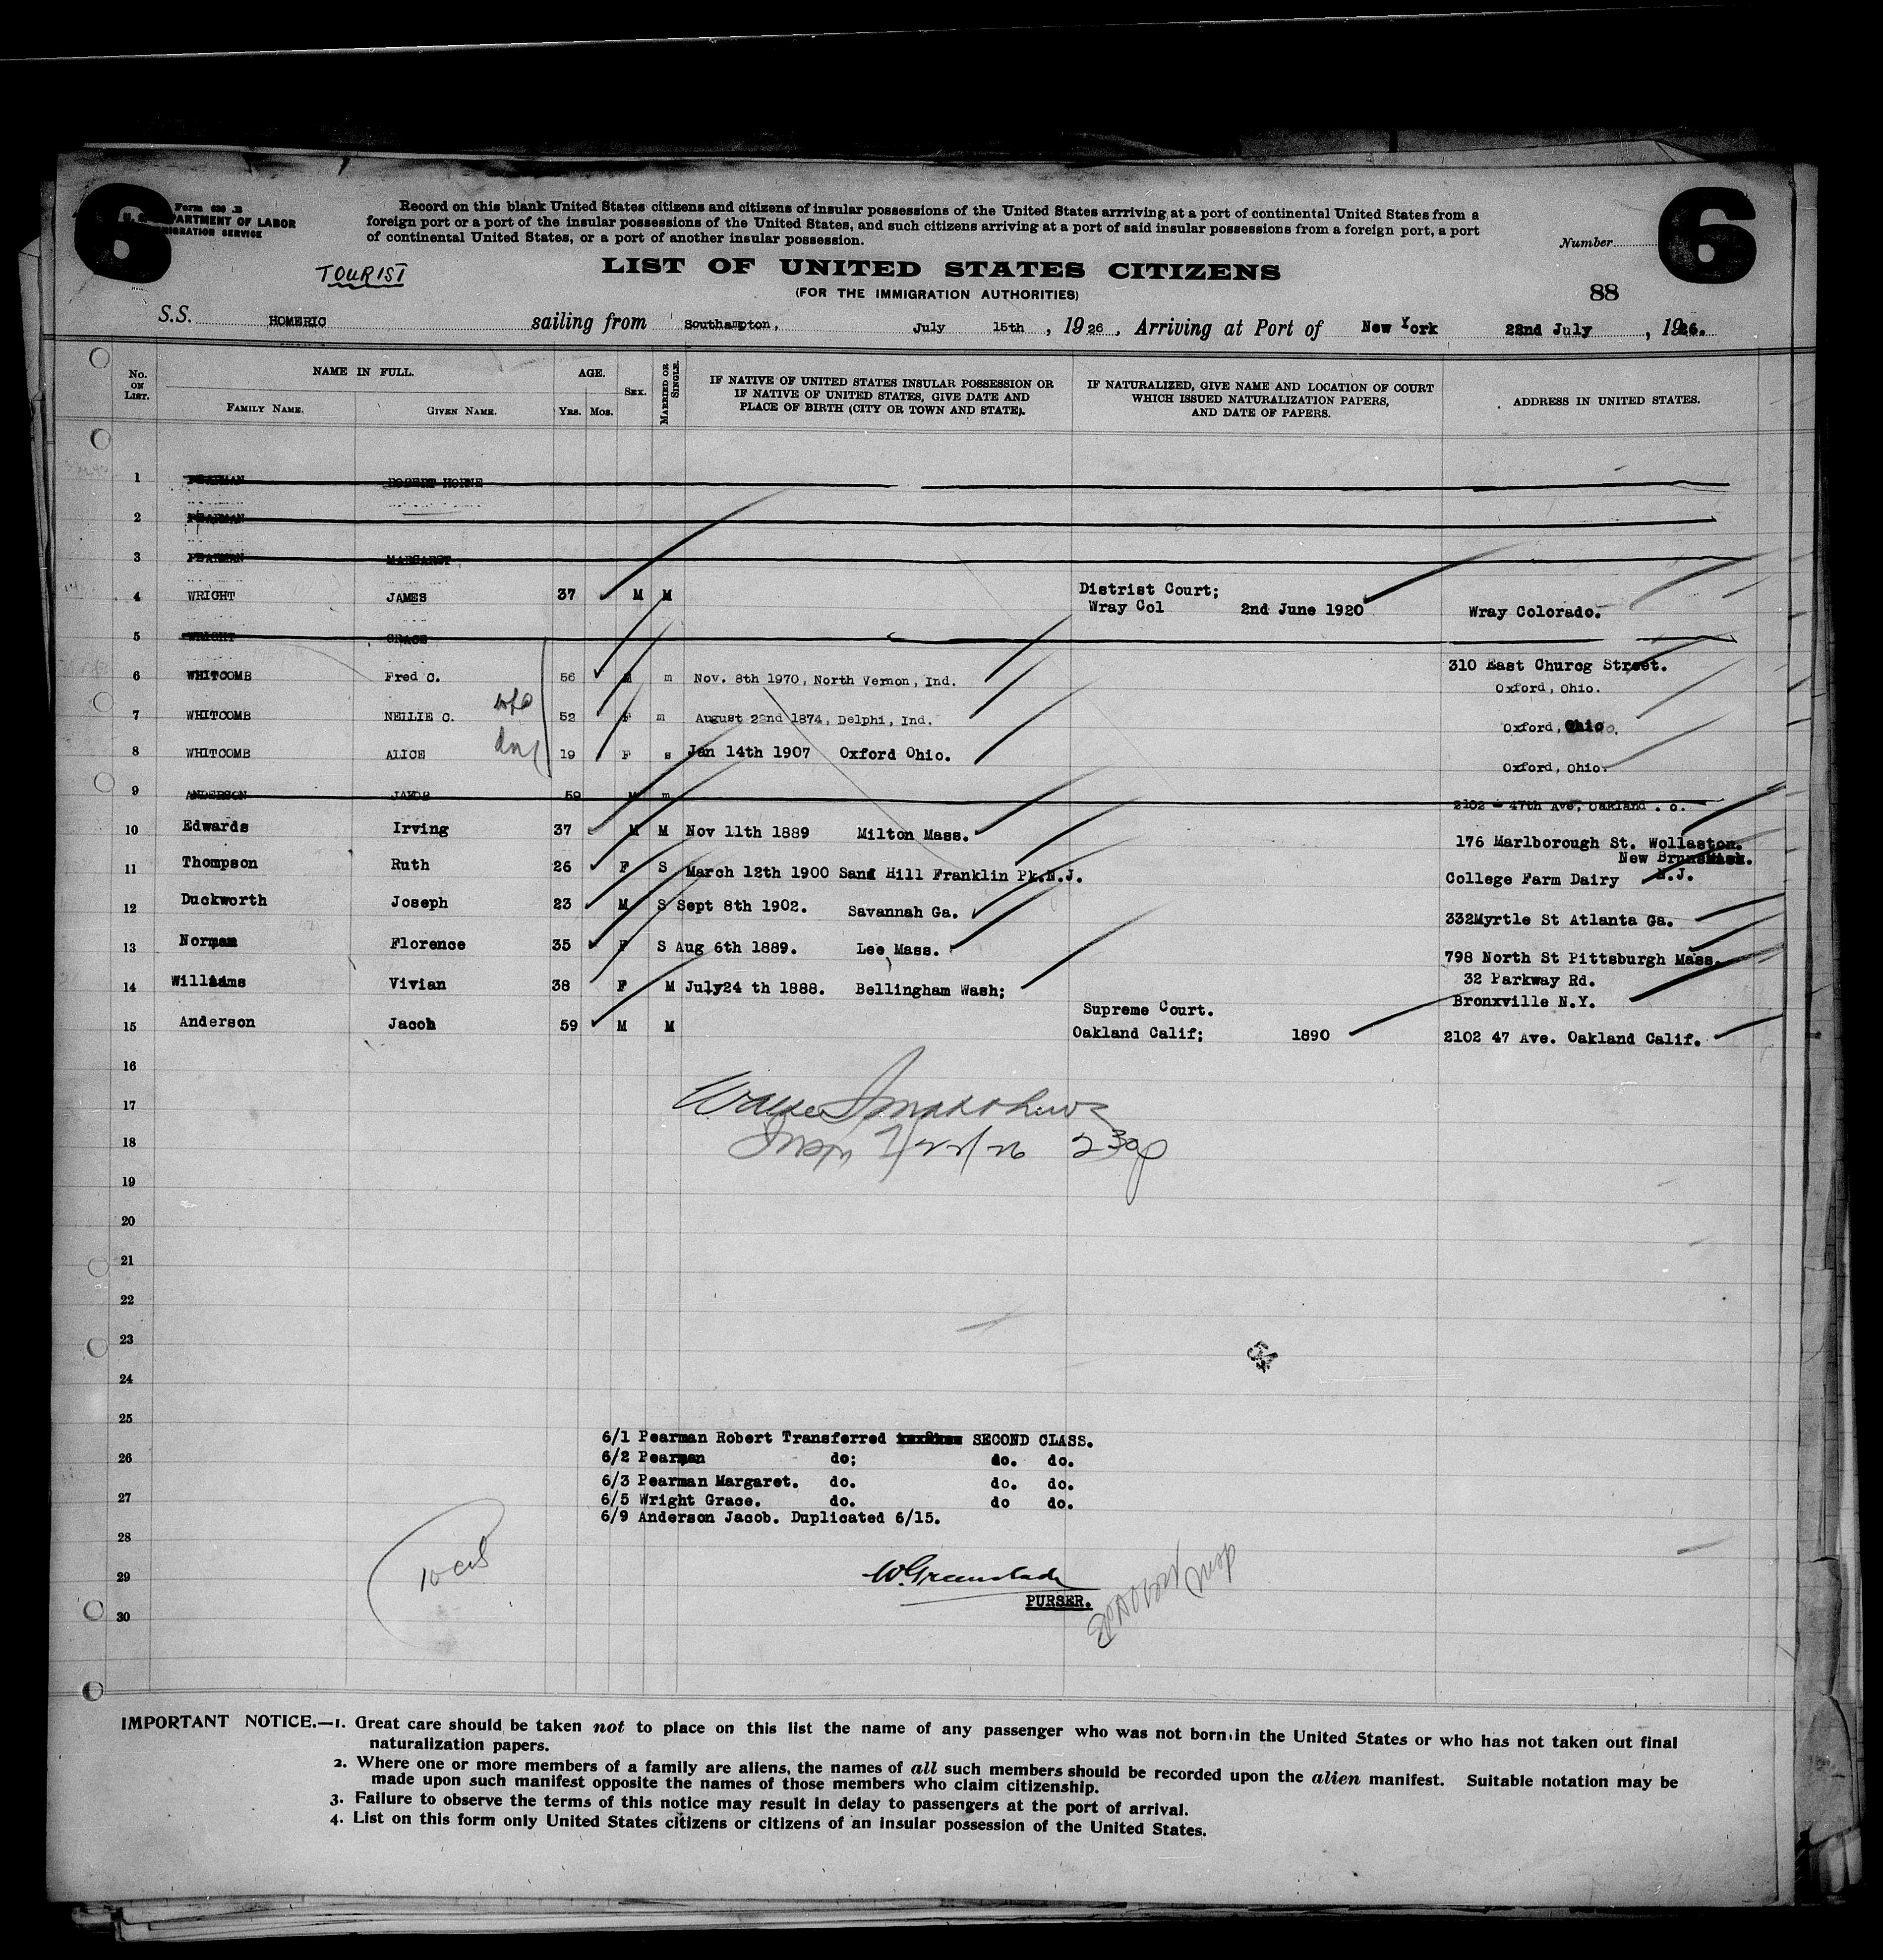 6 6
Form 630 B
U. S. DEPARTMENT OF LABOR
IMMIGRATION SERVICE
Record on this blank United States citizens and citizens of insular possessions of the United States arrriving at a port of continental United States from a
foreign port or a port of the insular possessions of the United States, and such citizens arriving at a port of said insular possessions from a foreign port, a port
of continental United States, or a port of another insular possession.
Number
TOURIST
LIST OF UNITED STATES CITIZENS
(FOR THE IMMIGRATION AUTHORITIES)
88
S.S. HOMERIC sailing from Southampton, July 15th, 1926, Arriving at Port of New York 22nd July, 1926.
No. ON LIST.
NAME IN FULL.
FAMILY NAME. GIVEN NAME.
AGE.
Yrs. Mos.
SEX.
MARRIED OR SINGLE.
IF NATIVE OF UNITED STATES INSULAR POSSESSION OR
IF NATIVE OF UNITED STATES, GIVE DATE AND
PLACE OF BIRTH (CITY OR TOWN AND STATE).
IF NATURALIZED, GIVE NAME AND LOCATION OF COURT
WHICH ISSUED NATURALIZATION PAPERS,
AND DATE OF PAPERS.
ADDRESS IN UNITED STATES.
1 PEARMAN ROBERT HORNE
2 PEARMAN
3 PEARMAN MARGARET
4 WRIGHT JAMES 37 M M District Court; Wray Col 2nd June 1920 Wray Colorado.
5 WRIGHT GRACE
6 WHITCOMB Fred C. 56 M m Nov. 8th 1970, North Vernon, Ind. 310 East Churcg Street. Oxford, Ohio.
7 WHITCOMB NELLIE C. wfe 52 F m August 22nd 1874, Delphi, Ind. Oxford, Ohio.
8 WHITCOMB ALICE 19 F s Jan 14th 1907 Oxford Ohio. Oxford, Ohio.
9 ANDERSON JAKOB 59 M m 2102 - 47th Ave, Oakland . o.
10 Edwards Irving 37 M M Nov 11th 1889 Milton Mass. 176 Marlborough St. Wollaston.
11 Thompson Ruth 26 F S March 12th 1900 Sand Hill Franklin Pk.N.J. College Farm Dairy New Brunswick. N.J.
12 Duckworth Joseph 23 M S Sept 8th 1902. Savannah Ga. 332Myrtle St Atlanta Ga.
13 Norman Florence 35 F S Aug 6th 1889. Lee Mass. 798 North St Pittsburgh Mass.
14 Williams Vivian 38 F M July24 th 1888. Bellingham Wash; 32 Parkway Rd. Bronxville N.Y.
15 Anderson Jacob 59 M M Supreme Court. Oakland Calif; 1890 2102 47 Ave. Oakland Calif.
16
17
18
7/22/26 2 30p
19
20
21
22
23
24
25
6/1 Pearman Robert Transferred SECOND CLASS.
26
6/2 Pearman do; do. do.
6/3 Pearman Margaret. do. do. do.
27
6/5 Wright Grace. do. do do.
6/9 Anderson Jacob. Duplicated 6/15.
28
29
PURSER.
30
IMPORTANT NOTICE.—1. Great care should be taken not to place on this list the name of any passenger who was not born in the United States or who has not taken out final
naturalization papers.
2. Where one or more members of a family are aliens, the names of all such members should be recorded upon the alien manifest. Suitable notation may be
made upon such manifest opposite the names of those members who claim citizenship.
3. Failure to observe the terms of this notice may result in delay to passengers at the port of arrival.
4. List on this form only United States citizens or citizens of an insular possession of the United States.